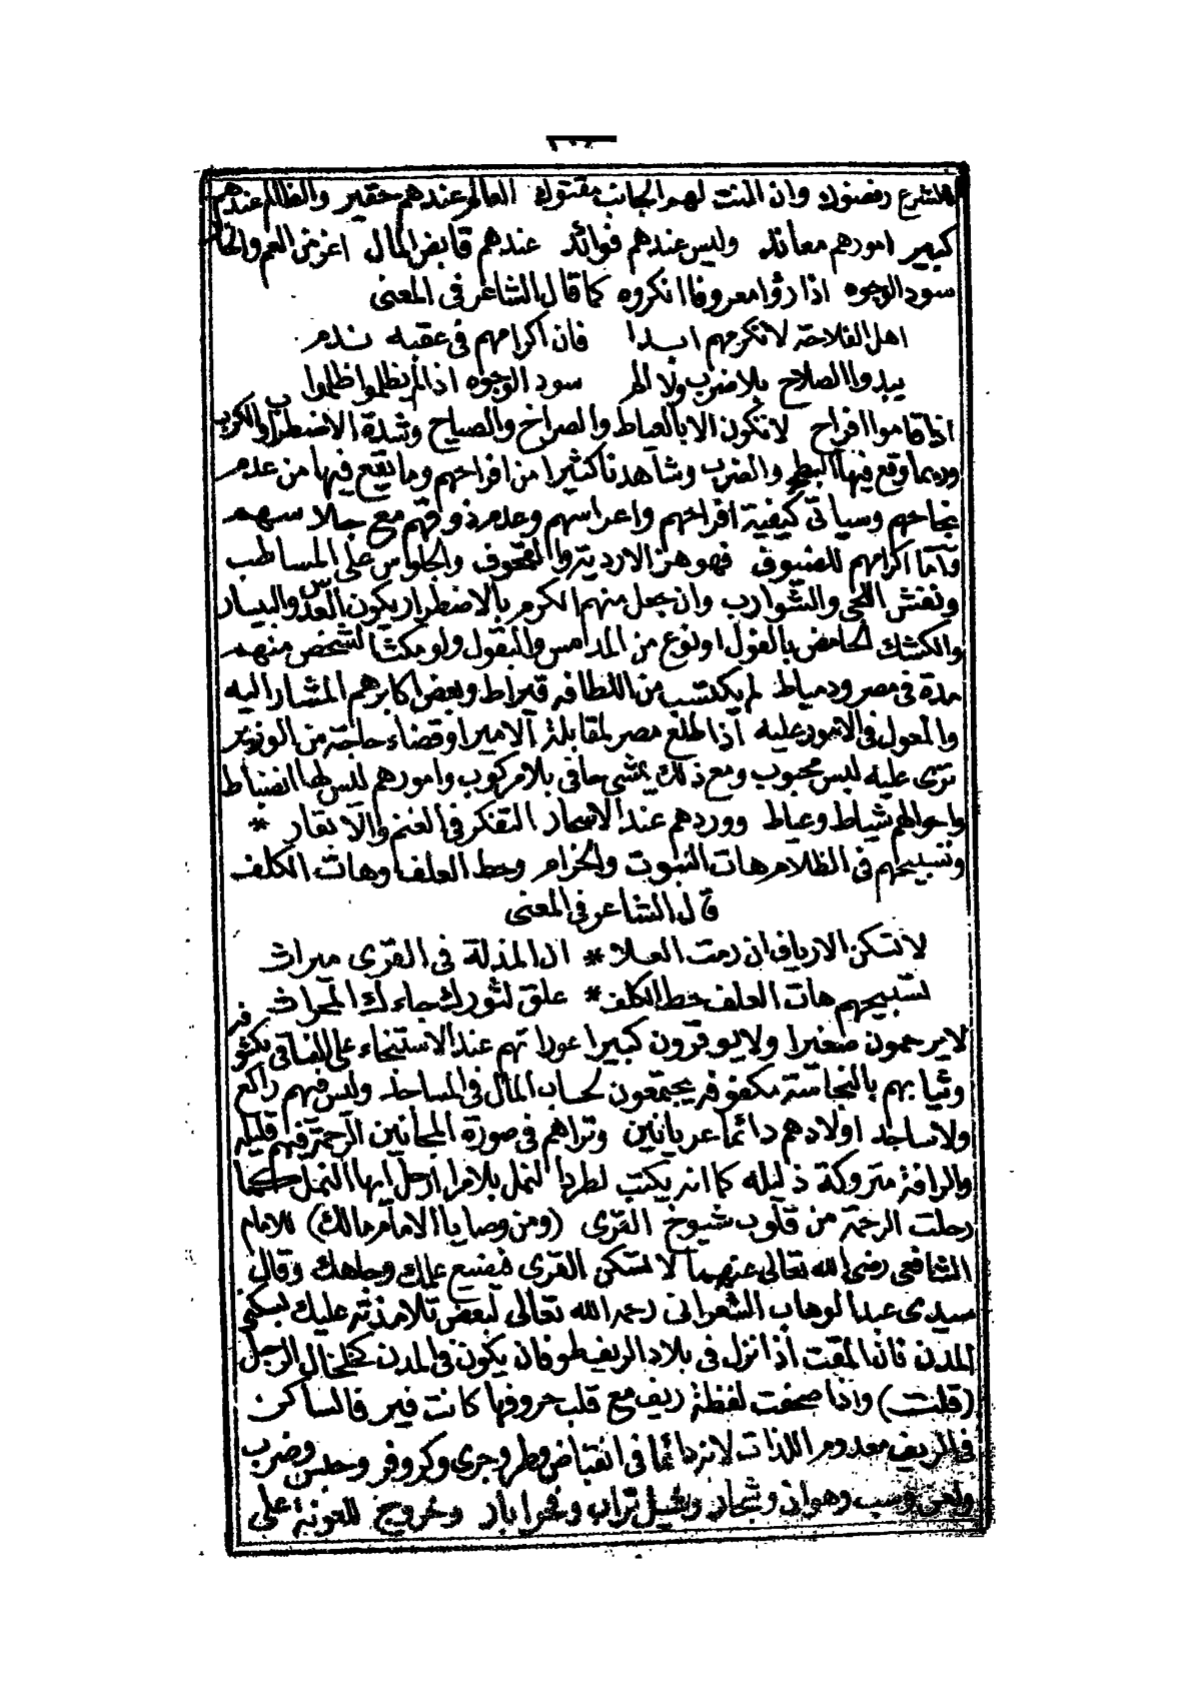 للشرع رفضوك وان النت لهم الجانب مقتوك العالم عندهم حقير والظالم عندهم
كبير امورهم معاند وليس عندهم فوائد عندهم قابض المال اعز من العم والخال
سود الوجوه اذا رؤا معروفا انكروه كما قال الشاعر في المعنى
اهل الفلاحة لا تكرمهم ابدا فان اكرامهم في عقبه ندم
يبدوا الصلاح بلا ضرب ولا الم سود الوجوه اذا لم يظلموا ظلموا
اذا قاموا افراح لا تكون الا بالعياط والصراخ والصياح وشدة الاضطراب والكرب
وربما وقع فيها البطح والضرب وشاهدنا كثيرا من افراحهم وما يقع فيها من عدم
نجاحهم وسياتى كيفية افراحهم واعراسهم وعدم ذوقهم مع جلاسهم
واما اكرامهم للضيوف فهو هز الاردية والقحوف والجلوس على المساطب
ونفش اللحى والشوارب وان حصل منهم الكرم بالاضطرار يكون العدس والبيسار
والكشك الحامض بالفول او نوع من المدامس والبقول ولو مكث الشخص منهم
مدة في مصر ودمياط لم يكتسب من اللطافه قيراط وبعض اكابرهم المشار اليه
والمعول في الامور عليه اذا طلع مصر لمقابلة الامير او قضاء حاجة من الوزير
ترى عليه لبس محبوب ومع ذلك يمشي حافي بلا مركوب وامورهم ليس لها انضباط
واحوالهم شياط وعياط ووردهم عند الاسحار التفكر في الغنم والابقار *
وتسبيحهم في الظلام هات النبوت والحزام وحط العلف وهات الكلف
قال الشاعر في المعنى
لا تسكن الارياف ان رمت العلا * ان المذلة في القرى ميراث
تسبيحهم هات العلف حط الكلف * علق لثورك جاءك المحراث
لا يرحمون صغيرا ولا يوقرون كبيرا عوراتهم عند الاستنجاء على الفساقي مكشوفه
وثيابهم بالنجاسة مكفوفه يجتمعون لحساب المال في المساجد وليس فيهم راكع
ولا ساجد اولادهم دائما عريانين وتراهم في صورة المجانين الرحمة فيهم قليله
والرافة متروكة ذليله كما انه يكتب لطرد النمل بلا مرا ارحل ايها النمل كما
رحلت الرحمة من قلوب شيوخ القرى (ومن وصايا الامام مالك) للامام
الشافعي رضى الله تعالى عنهما لا تسكن القرى فيضيع علمك وجاهك وقال
سيدى عبد الوهاب الشعراني رحمه الله تعالى لبعض تلامذته عليك بسكنى
المدن فان المقت اذا نزل في بلاد الريف طوفان يكون في المدن كخلخال الرجل
(قلت) واذا صحفت لفظة ريف مع قلب حروفها كانت فير فالساكن
في الريف معدوم اللذات لانه دائما في انقباض وطرد وجرى وكر وفر وحبس وضرب
ولعن وسب وهوان وشجار وشيل تراب وحفر ابار وخروج للعونة على